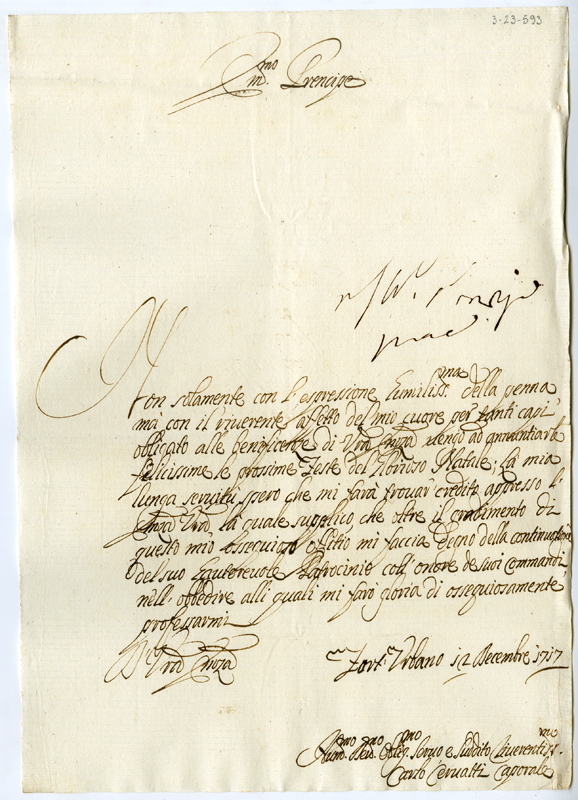 3-23-593
Em.mo Prencipe
Non solamente con l'espressione humiliss.ma della penna
mà con il riverente affetto del mio cuore per tanti capi
obligato alle beneficenze di Vra Emza vengo ad annuntiarle
felicissime le prossime feste del Natale; La mia
lunga servitù spero che mi farà trovar credito appresso l'
Emza Vra, la quale supplico che oltre il gradimento di
questo mio ossequioso offitio mi faccia degno della continuatione
del suo Autorevole Patrocinio coll'onore de suoi Commandi
nell'obbedire alli quali mi farò gloria di ossequiosamente
professarmi
D Vra Emza
Fort.e Urbano 12 Decembre 1717
Servo e Suddito Riverentis.mo
Carlo Caporale